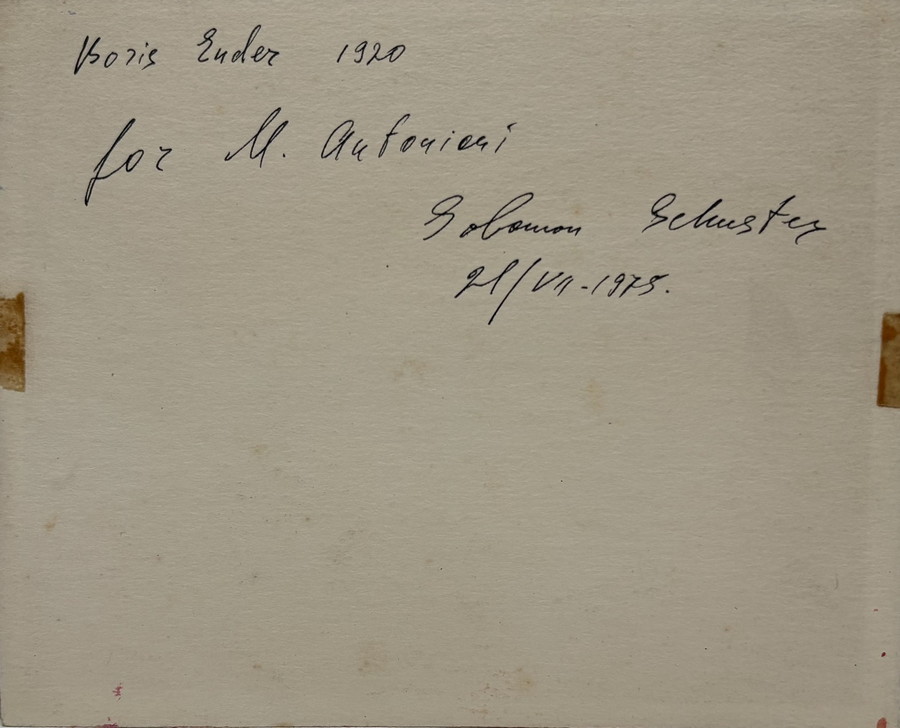 Boris Ender 1920
for M. Antonioni
Solomon Schuster
21/VII-1975.